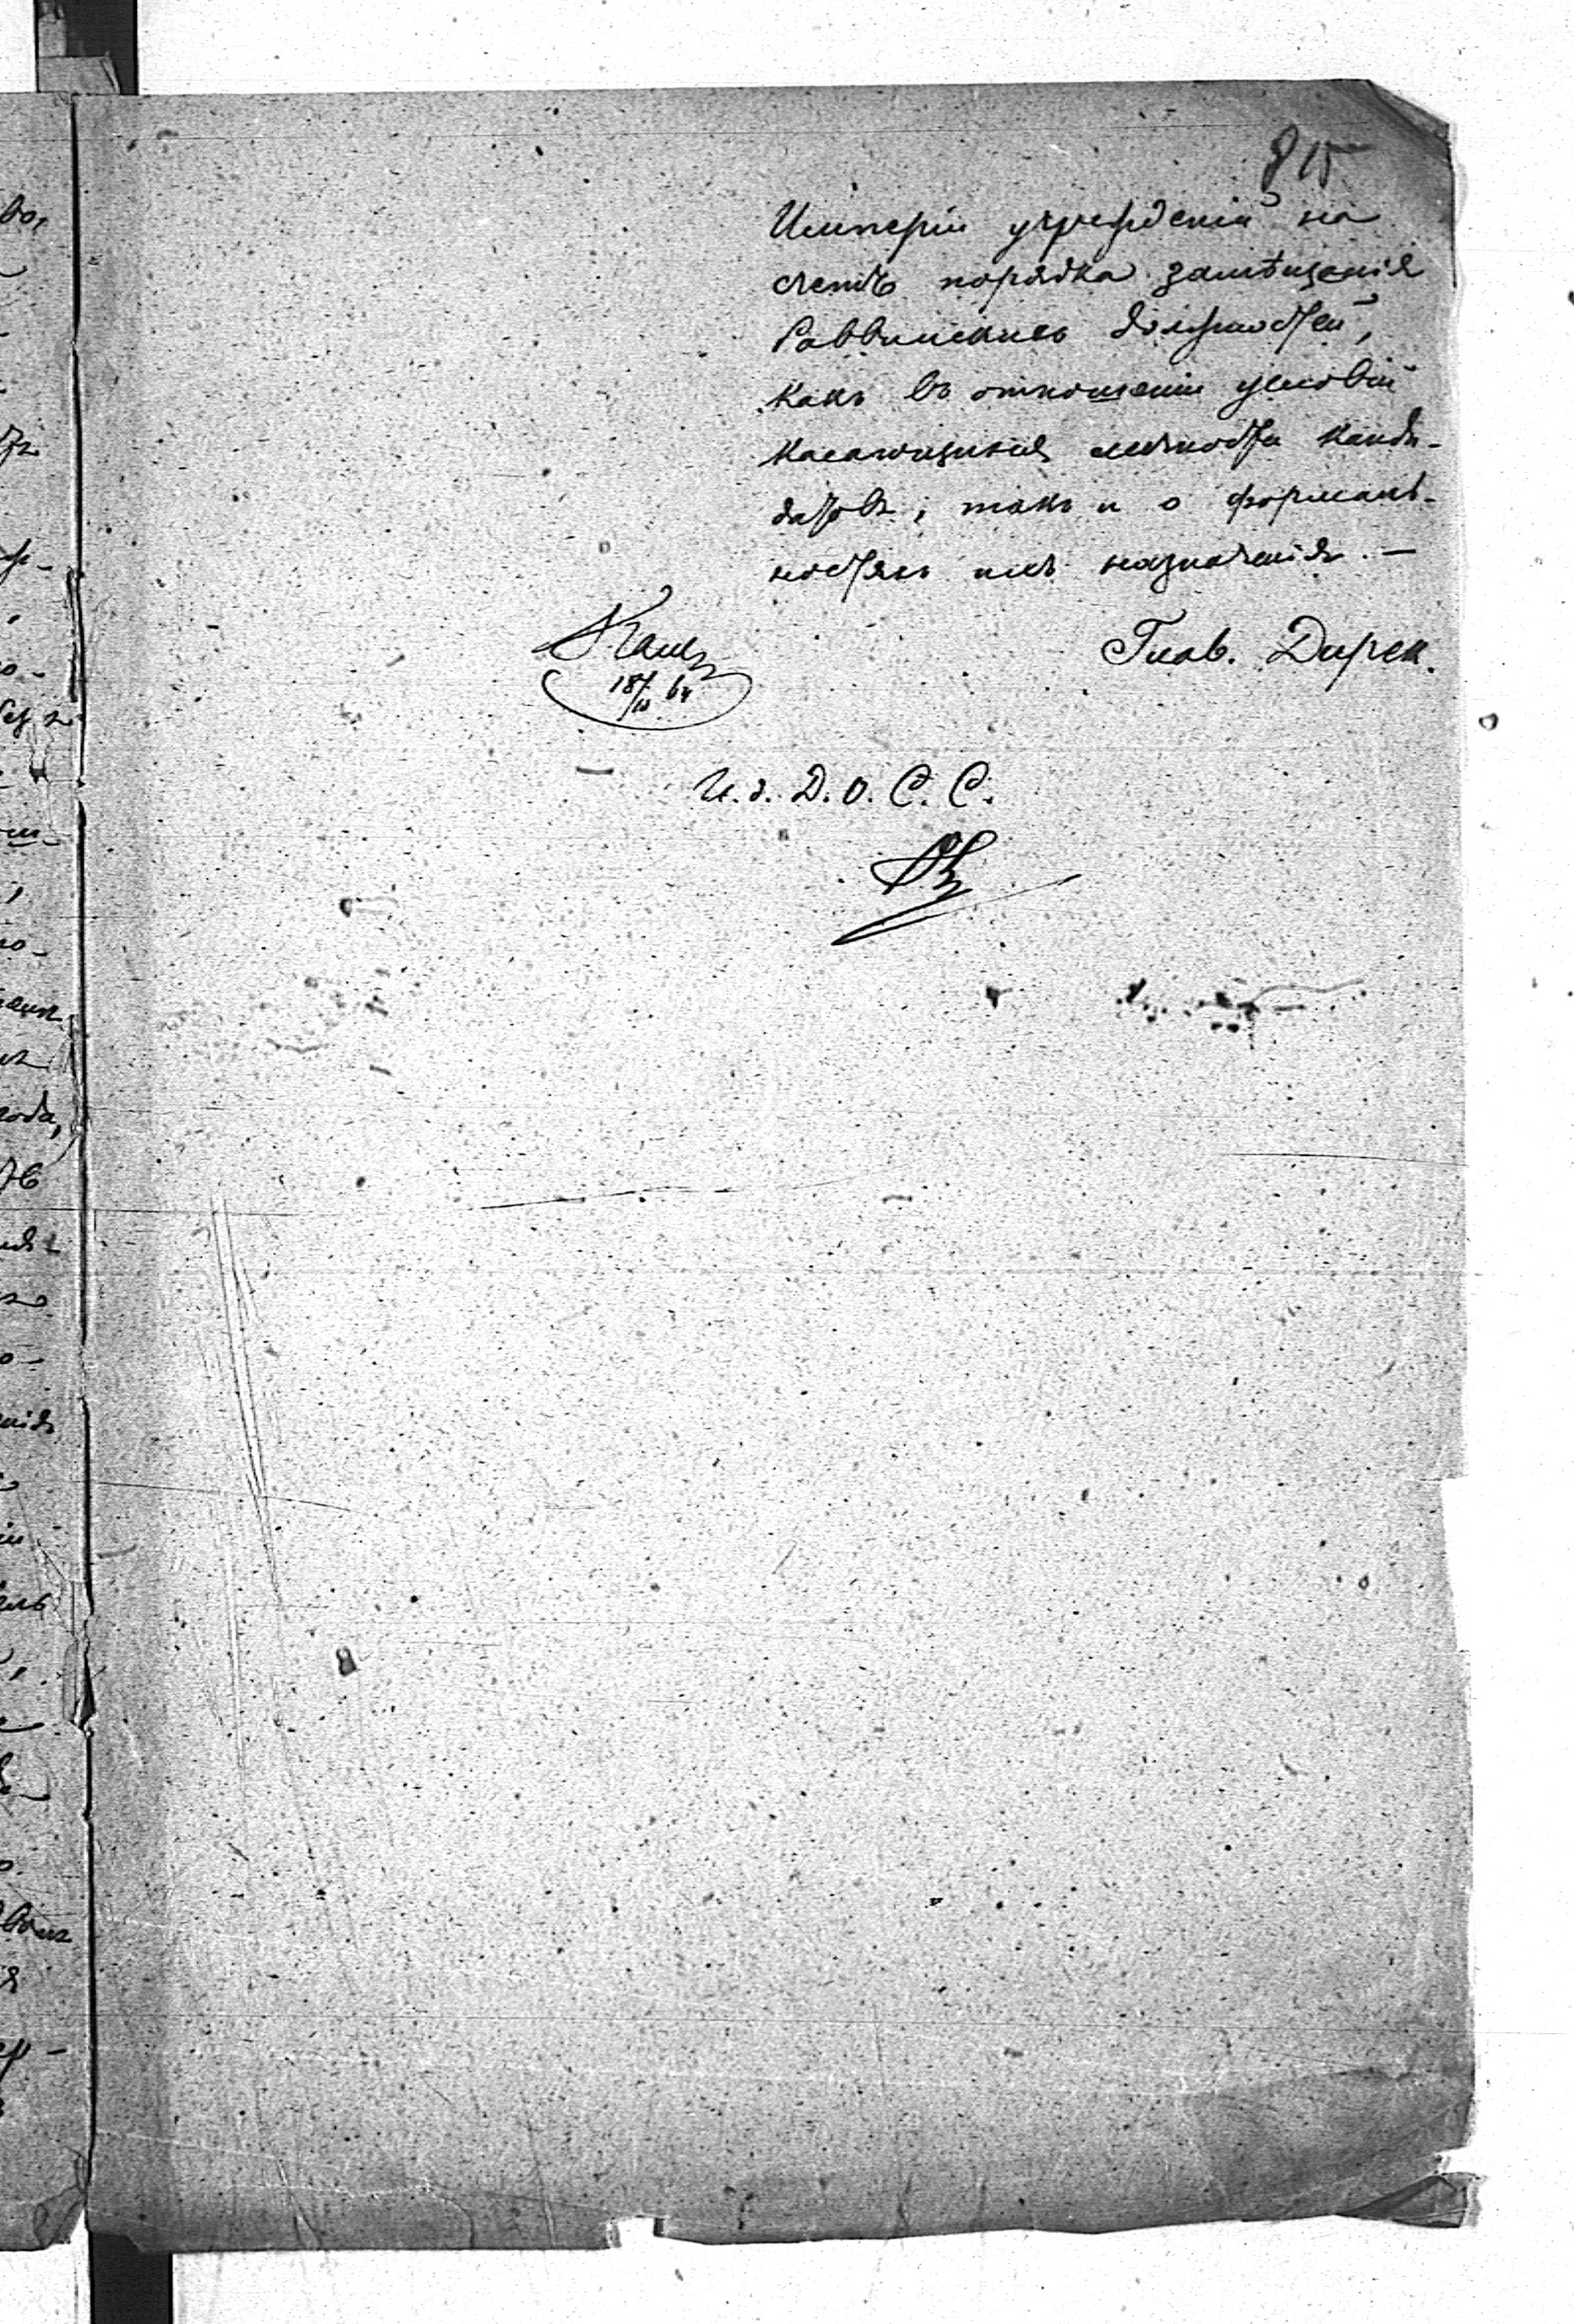 815
Имперіи учрежденій на
счетъ порядка замѣщенія
Раввинскихъ должностей,
какъ въ отношеніи условій
касающихся личности канди-
датовъ, такъ и о формаль-
ностяхъ ихъ назначенія. —
Глав. Дирек.
18/10 64
И. д. Д. О. С. С.